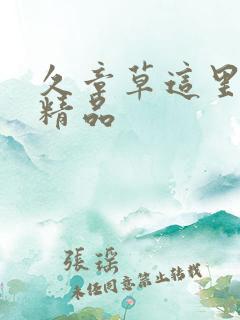 久章草這里
精品
張瑶
未经同意禁止转载